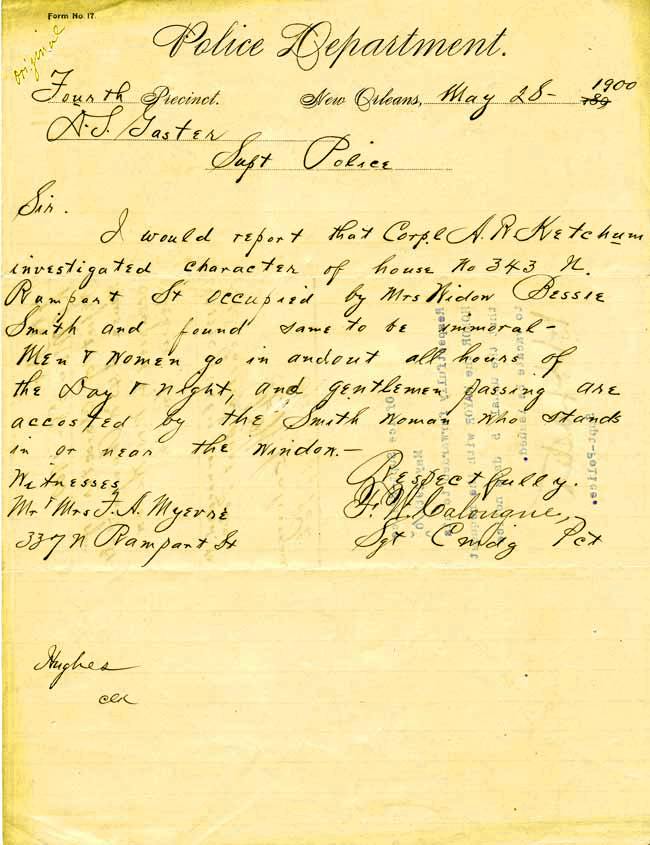 Form No. 17.
original
Police Department.
Fourth Precinct. New Orleans, May 28- 1900
189
D. S. Gaster
Supt Police
Sir.
I would report that Corpl A. R. Ketchum
investigated character of house No 343 N.
Rampart St occupied by Mrs Widow Bessie
Smith and found same to be immoral-
Men & Women go in and out all hours of
the Day & night, and gentlemen passing are
accosted by the Smith Woman who stands
in or near the Window.-
Witnesses Respectfully.
Mr & Mrs F. A. Myevre F. W. Calongne,
337 N Rampart St Sgt Cmdg Pct
Hughes
clk